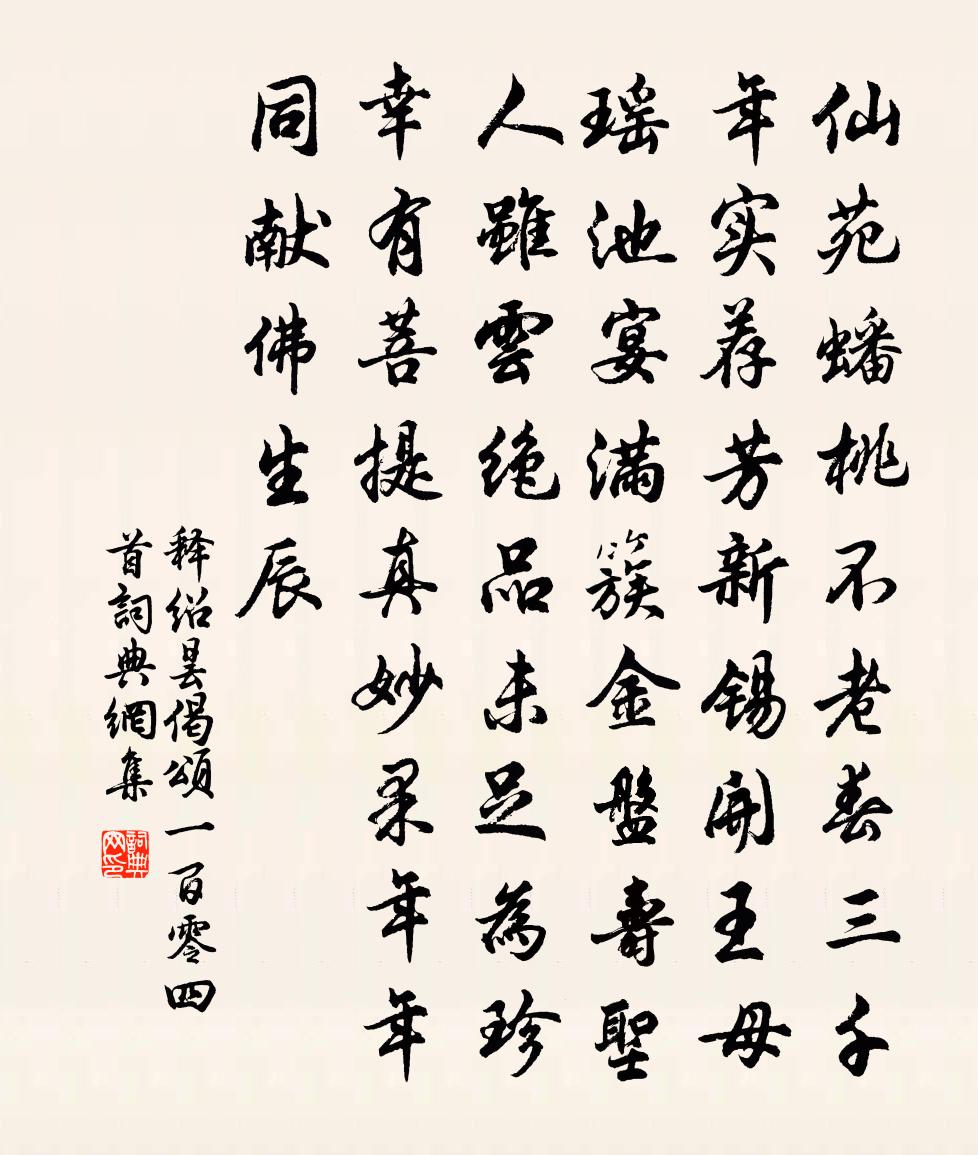 仙苑蟠桃不老春三千
年实荐芳新锡开王母
瑶池宴满簇金盤壽聖
人雖雲绝品未足為珍
幸有菩提真妙果年年
同献佛生辰
释绍昙偈頌一百零四
首詞典網集
詞典
网印